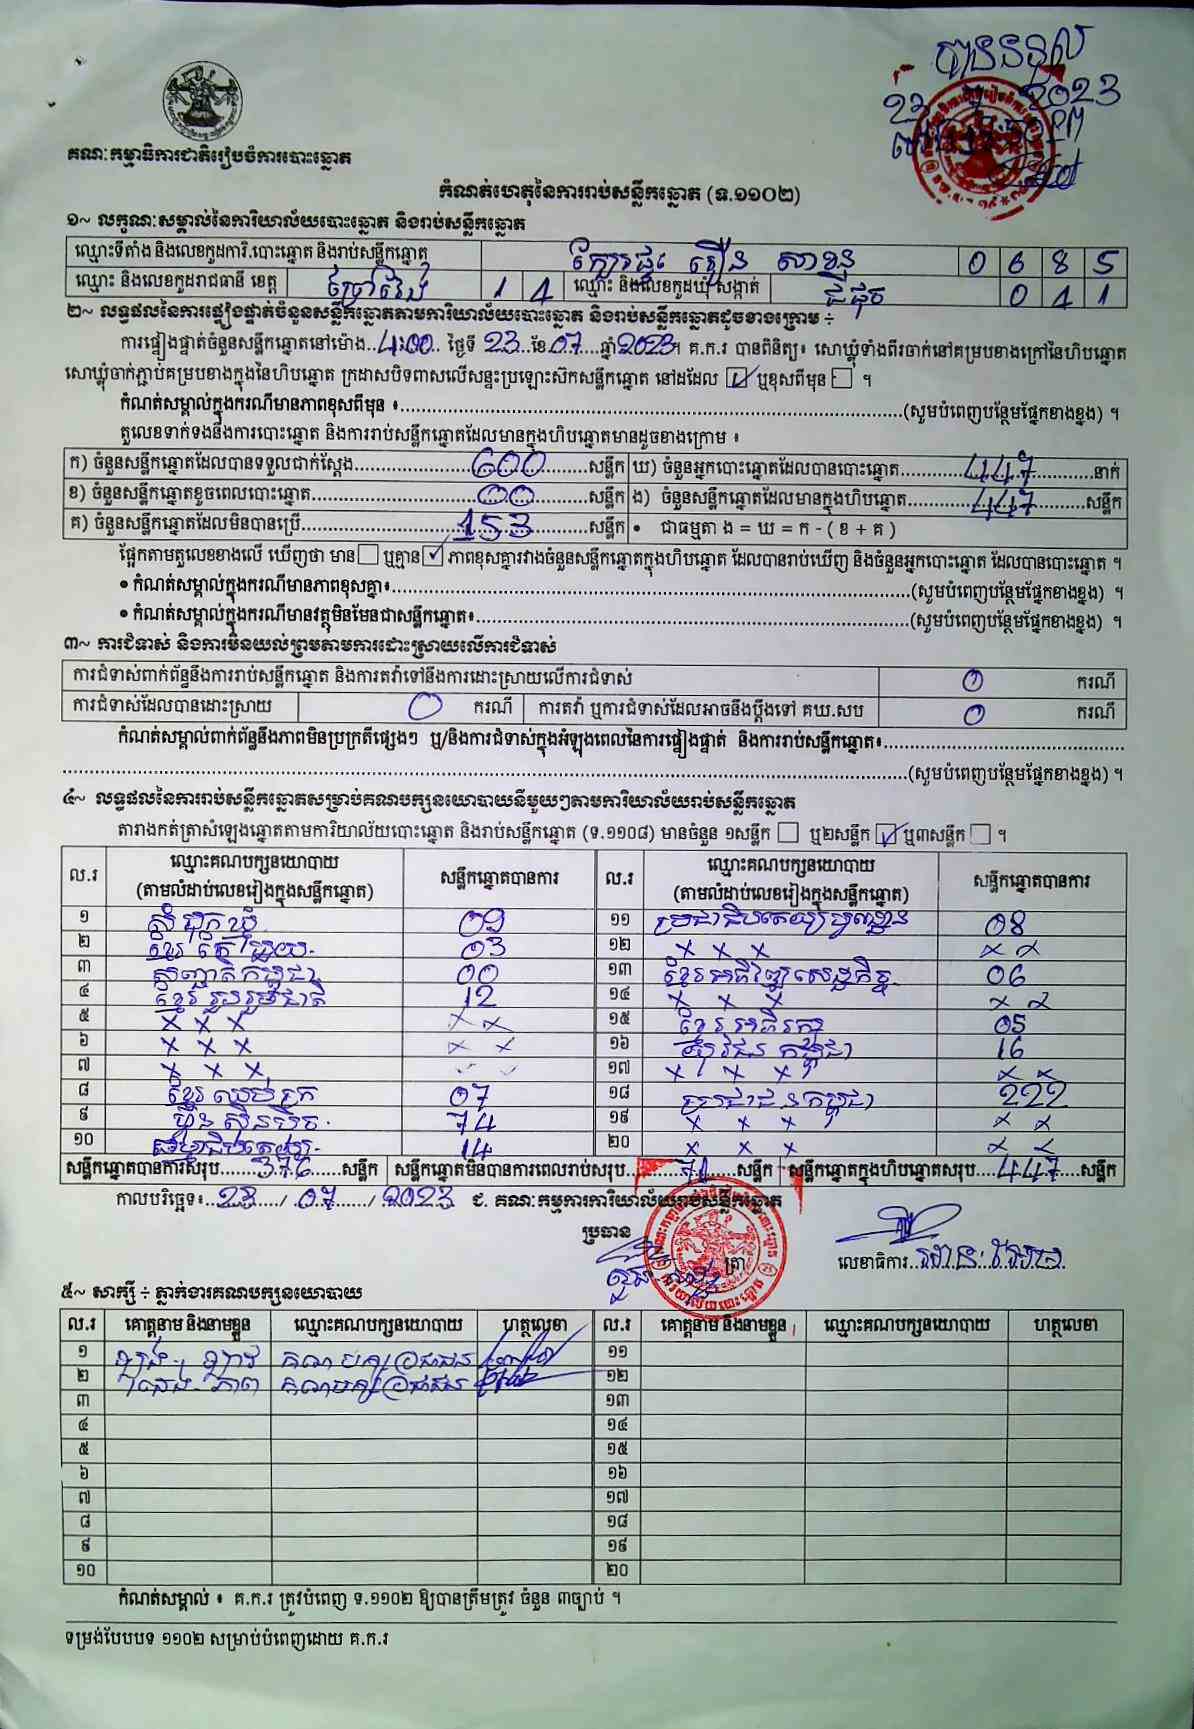 បានទទួល
23 2023
គណៈកម្មាធិការជាតិរៀបចំការបោះឆ្នោត
កំណត់ហេតុនៃការរាប់សន្លឹកឆ្នោត (ទ.១១០២)
១~ លក្ខណៈសម្គាល់នៃការិយាល័យបោះឆ្នោត និងរាប់សន្លឹកឆ្នោត
ឈ្មោះទីតាំង និងលេខកូដការិ.បោះឆ្នោត និងរាប់សន្លឹកឆ្នោត 0 6 8 5
ឈ្មោះ និងលេខកូដរាជធានី ខេត្ត ព្រៃវែង 1 4 ឈ្មោះ និងលេខកូដឃុំ សង្កាត់ 0 4 1
២~ លទ្ធផលនៃការផ្ទៀងផ្ទាត់ចំនួនសន្លឹកឆ្នោតតាមការិយាល័យបោះឆ្នោត និងរាប់សន្លឹកឆ្នោតដូចខាងក្រោម ÷
ការផ្ទៀងផ្ទាត់ចំនួនសន្លឹកឆ្នោតនៅម៉ោង..4:00.. ថ្ងៃទី 23..ខែ.07....ឆ្នាំ2023។ គ.ក.រ បានពិនិត្យ៖ សោឃ្លុំទាំងពីរចាក់នៅគម្របខាងក្រៅនៃហិបឆ្នោត
សោឃ្លុំចាក់ភ្ជាប់គម្របខាងក្នុងនៃហិបឆ្នោត ក្រដាសបិទពាសលើសន្ទះប្រឡោះស៊កសន្លឹកឆ្នោត នៅដដែល ☑ ឬខុសពីមុន ☐ ។
កំណត់សម្គាល់ក្នុងករណីមានភាពខុសពីមុន ៖........(សូមបំពេញបន្ថែមផ្នែកខាងខ្នង) ។
តួលេខទាក់ទងនឹងការបោះឆ្នោត និងការរាប់សន្លឹកឆ្នោតដែលមានក្នុងហិបឆ្នោតមានដូចខាងក្រោម ៖
ក) ចំនួនសន្លឹកឆ្នោតដែលបានទទួលជាក់ស្តែង........600........សន្លឹក ឃ) ចំនួនអ្នកបោះឆ្នោតដែលបានបោះឆ្នោត........447........នាក់
ខ) ចំនួនសន្លឹកឆ្នោតខូចពេលបោះឆ្នោត........00........សន្លឹក ង) ចំនួនសន្លឹកឆ្នោតដែលមានក្នុងហិបឆ្នោត........447........សន្លឹក
គ) ចំនួនសន្លឹកឆ្នោតដែលមិនបានប្រើ........153........សន្លឹក • ជាធម្មតា ង = ឃ = ក - ( ខ + គ )
ផ្អែកតាមតួលេខខាងលើ ឃើញថា មាន ☐ ឬគ្មាន ☑ ភាពខុសគ្នារវាងចំនួនសន្លឹកឆ្នោតក្នុងហិបឆ្នោត ដែលបានរាប់ឃើញ និងចំនួនអ្នកបោះឆ្នោត ដែលបានបោះឆ្នោត ។
• កំណត់សម្គាល់ក្នុងករណីមានភាពខុសគ្នា៖........(សូមបំពេញបន្ថែមផ្នែកខាងខ្នង) ។
• កំណត់សម្គាល់ក្នុងករណីមានវត្ថុមិនមែនជាសន្លឹកឆ្នោត៖........(សូមបំពេញបន្ថែមផ្នែកខាងខ្នង) ។
៣~ ការជំទាស់ និងការមិនយល់ព្រមតាមការដោះស្រាយលើការជំទាស់
ការជំទាស់ពាក់ព័ន្ធនឹងការរាប់សន្លឹកឆ្នោត និងការតវ៉ាទៅនឹងការដោះស្រាយលើការជំទាស់ 0 ករណី
ការជំទាស់ដែលបានដោះស្រាយ 0 ករណី ការតវ៉ា ឬការជំទាស់ដែលអាចនឹងប្តឹងទៅ គឃ.សប 0 ករណី
កំណត់សម្គាល់ពាក់ព័ន្ធនឹងភាពមិនប្រក្រតីផ្សេងៗ ឬ/និងការជំទាស់ក្នុងអំឡុងពេលនៃការផ្ទៀងផ្ទាត់ និងការរាប់សន្លឹកឆ្នោត៖........
........(សូមបំពេញបន្ថែមផ្នែកខាងខ្នង) ។
៤~ លទ្ធផលនៃការរាប់សន្លឹកឆ្នោតសម្រាប់គណបក្សនយោបាយនីមួយៗតាមការិយាល័យរាប់សន្លឹកឆ្នោត
តារាងកត់ត្រាសំឡេងឆ្នោតតាមការិយាល័យបោះឆ្នោត និងរាប់សន្លឹកឆ្នោត (ទ.១១០៨) មានចំនួន ១សន្លឹក ☐ ឬ២សន្លឹក ☑ ឬ៣សន្លឹក ☐ ។
ល.រ ឈ្មោះគណបក្សនយោបាយ (តាមលំដាប់លេខរៀងក្នុងសន្លឹកឆ្នោត) សន្លឹកឆ្នោតបានការ ល.រ ឈ្មោះគណបក្សនយោបាយ (តាមលំដាប់លេខរៀងក្នុងសន្លឹកឆ្នោត) សន្លឹកឆ្នោតបានការ
១ 09 ១១ 08
២ 03 ១២ x x x x x
៣ 00 ១៣ 06
៤ ខ្មែររួបរួមជាតិ 12 ១៤ x x x x x
៥ x x x x x ១៥ ខ្មែរអភិរក្ស 05
៦ x x x x x ១៦ 16
៧ x x x ១៧ x x x x x
៨ ខ្មែរឈប់ក្រ 07 ១៨ ប្រជាជនកម្ពុជា 222
៩ ហ៊្វុនស៊ិនប៉ិច 74 ១៩ x x x x x
១០ 14 ២០ x x x x x
សន្លឹកឆ្នោតបានការសរុប........376......សន្លឹក សន្លឹកឆ្នោតមិនបានការពេលរាប់សរុប........71......សន្លឹក សន្លឹកឆ្នោតក្នុងហិបឆ្នោតសរុប....447.....សន្លឹក
កាលបរិច្ឆេទ៖..23..../..07..../..2023 ជ. គណៈកម្មការការិយាល័យរាប់សន្លឹកឆ្នោត
ប្រធាន
ត្រា
លេខាធិការ........
៥~ សាក្សី ÷ ភ្នាក់ងារគណបក្សនយោបាយ
ល.រ គោត្តនាម និងនាមខ្លួន ឈ្មោះគណបក្សនយោបាយ ហត្ថលេខា ល.រ គោត្តនាម និងនាមខ្លួន ឈ្មោះគណបក្សនយោបាយ ហត្ថលេខា
១ គណបក្សប្រជាជន ១១
២ គណបក្សប្រជាជន ១២
៣ ១៣
៤ ១៤
៥ ១៥
៦ ១៦
៧ ១៧
៨ ១៨
៩ ១៩
១០ ២០
កំណត់សម្គាល់ ៖ គ.ក.រ ត្រូវបំពេញ ទ.១១០២ ឱ្យបានត្រឹមត្រូវ ចំនួន ៣ច្បាប់ ។
ទម្រង់បែបបទ ១១០២ សម្រាប់បំពេញដោយ គ.ក.រ